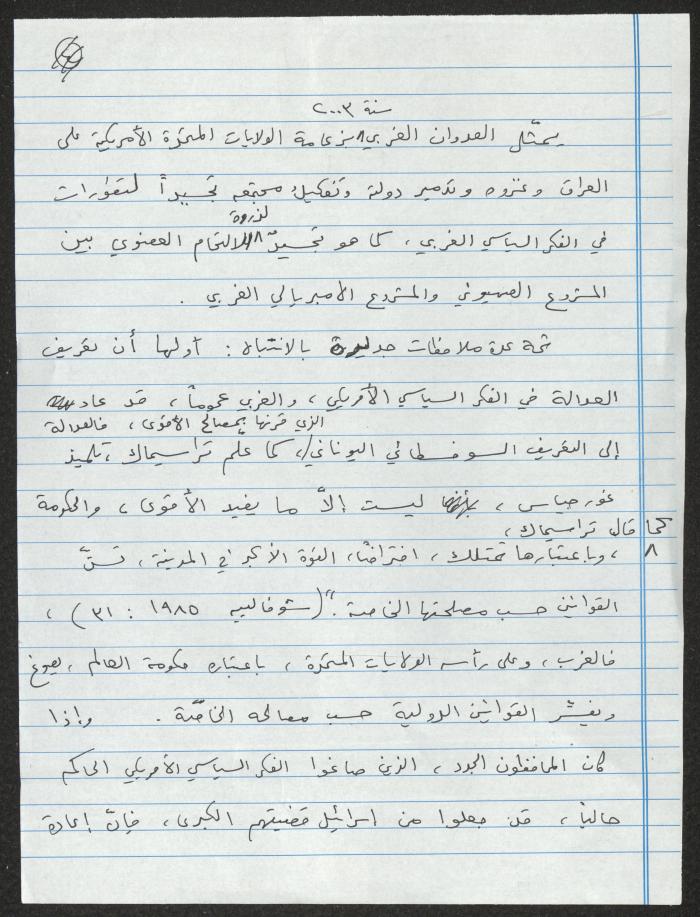 سنة ٢٠٠٣
يمثّل العدوان الغربي بزعامة الولايات المتحدة الأمريكية على
العراق وغزوه وتدمير دولته وتفكيك مجتمعه تجسيداً لتطورات
لذروة
في الفكر السياسي الغربي، كما هو تجسيدٌ الالتحام العضوي بين
المشروع الصهيوني والمشروع الامبريالي الغربي.
ثمة عدة ملاحظات جديرة بالانتباه: أولها أن تعريف
العدالة في الفكر السياسي الأمريكي، والغربي عموماً، قد عاد
الذي قرنها بمصالح الأقوى، فالعدالة
إلى التعريف السوفسطائي اليوناني، كما علم تراسيماك، تلميذ
غورجياس، ليست إلاّ ما يفيد الأقوى، والحكومة
كما قال تراسيماك،
، وباعتبارها تمتلك، افتراضاً، القوة الأكبر في المدينة، تسنّ
القوانين حسب مصلحتها الخاصة." (شوفالييه ١٩٨٥ : ٣١)،
فالغرب، وعلى رأسه الولايات المتحدة، باعتباره حكومة العالم، يصوغ
ويفسّر القوانين الدولية حسب مصالحه الخاصّة. وإذا
كان المحافظون الجدد، الذين صاغوا الفكر السياسي الأمريكي الحاكم
حالياً، قد جعلوا من إسرائيل قضيتهم الكبرى، فإنّ إعادة